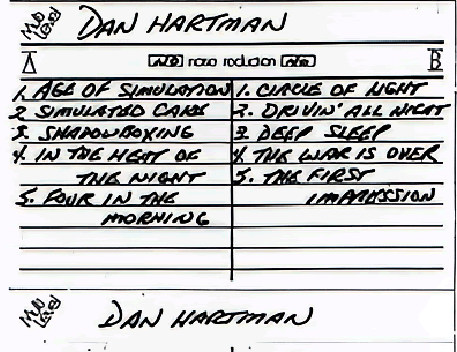 DAN HARTMAN
A
noise reduction
B
1. AGE OF SIMULATION
2 SIMULATED
3. SHADOWBOXING
4. IN THE HEAT OF
THE NIGHT
5. FOUR IN THE
MORNING
1. CIRCLE OF LIGHT
2. DRIVIN' ALL NIGHT
3. DEEP SLEEP
4. THE WAR IS OVER
5. THE FIRST
IMPRESSION
DAN HARTMAN